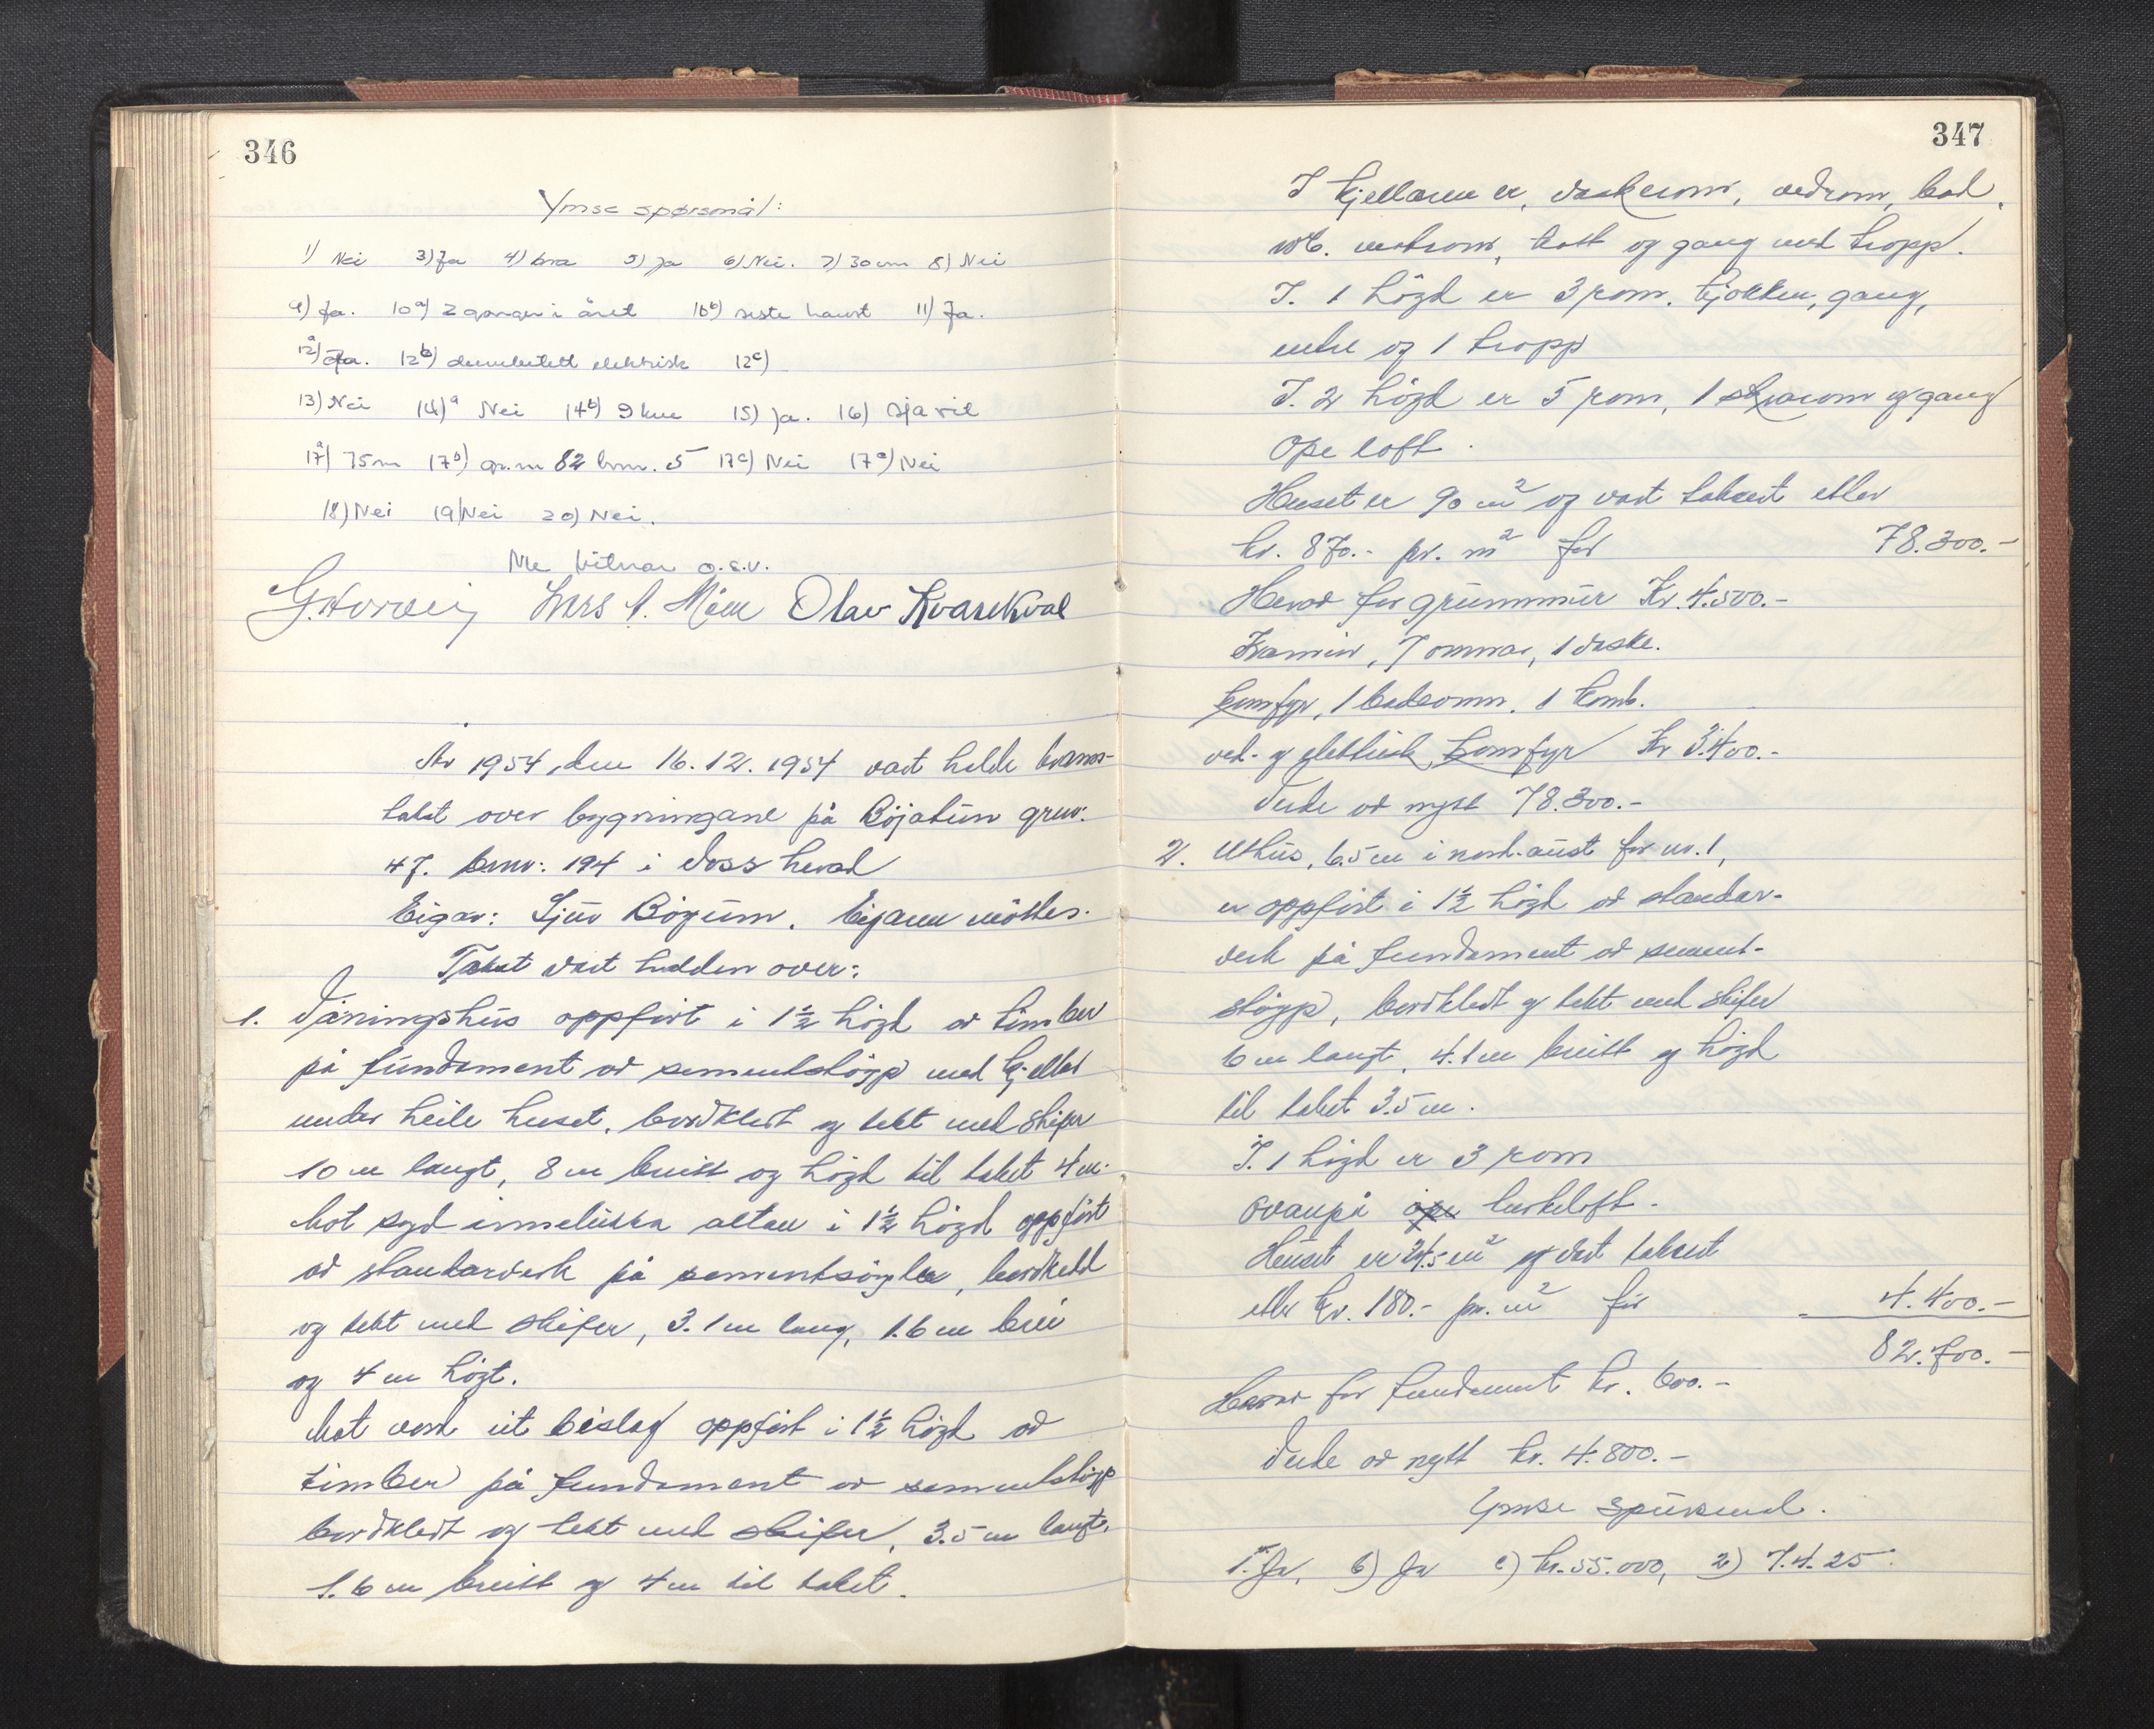 346
Ymse spørsmål:
1) Nei 3) Ja 4) bra 5) Ja 6) Nei. 7) 30 cm 8) Nei
9) Ja. 10a) 2 ganger i året 10b) siste haust 11) Ja.
12a) Ja. 12b) elektrisk 12c)
13) Nei 14)a Nei 14b) 9 km 15) Ja. 16) Sja vil
17a) 75m 17b) gr.nr 82 bnr. 5 17c) Nei 17c) Nei
18) Nei 19) Nei 20) Nei.
Me vitnar o.s.v.
Lars A. Møen Olav Kvarekval
År 1954, den 16.12.1954 vart helde brann-
takst over bygningane på Böjatun gruv:
47. bruv: 194 i Voss herad
Eigar: Sjur Böyum. Eigaren møtte.
Takst vart halden over:
1. Våningshus oppfört i 1½ högd av timber
på fundament av sementstöyp med kjellar
under heile huset, bordkledt og tekt med skifer
10 m langt, 8 m breitt og högd til taket 4 m.
Mot syd innelukka altan i 1½ högd oppfört
av standarverk på sementsöyler, bordkledd
og tekt med skifer, 3.1 m lang, 1.6 m brei
og 4 m högt.
Mot vest eit bislag oppfört i 1½ högd av
timber på fundament av sementstöyp
bordkledt og tekt med skifer, 3.5 m langt,
1.6 m breitt og 4 m til taket.
347
I kjellaren er, vaskerom, vedrom, bad,
wc. matrom, kott og gang med tropp.
I. 1 högd er 3 rom. kjökken, gang,
entre og 1 tropp
I. 2 högd er 5 rom, 1 og gang
Ope loft.
Huset er 90 m² og vart taksert etter
kr. 870.- pr. m² for 78.300.-
Herav for grunnmur Kr. 4.500.-
Kamin, 7 omnar, 1 vaske.
komfyr, 1 badeomn. 1 komb.
ved- og elektrisk komfyr Kr 3.400.-
Verde av nytt 78.300.-
2. Uthus, 6.5 m i nord-aust for nr. 1,
er oppfört i 1½ högd av standar-
verk på fundament av sement-
stöyp, bordkledt og tekt med skifer
6 m langt, 4.1 m breitt og högd
til taket 3.5 m.
I. 1 högd er 3 rom
ovanpå ope
Huset er 24.5 m² og vart taksert
etter kr. 180.- pr. m² for 4.400.-
82.700.-
Herav for fundament kr. 600.-
Verde av nytt kr. 4.800.-
Ymse spursmal.
1.a Ja, b) Ja c) kr. 55.000, 2) 7.4.25.